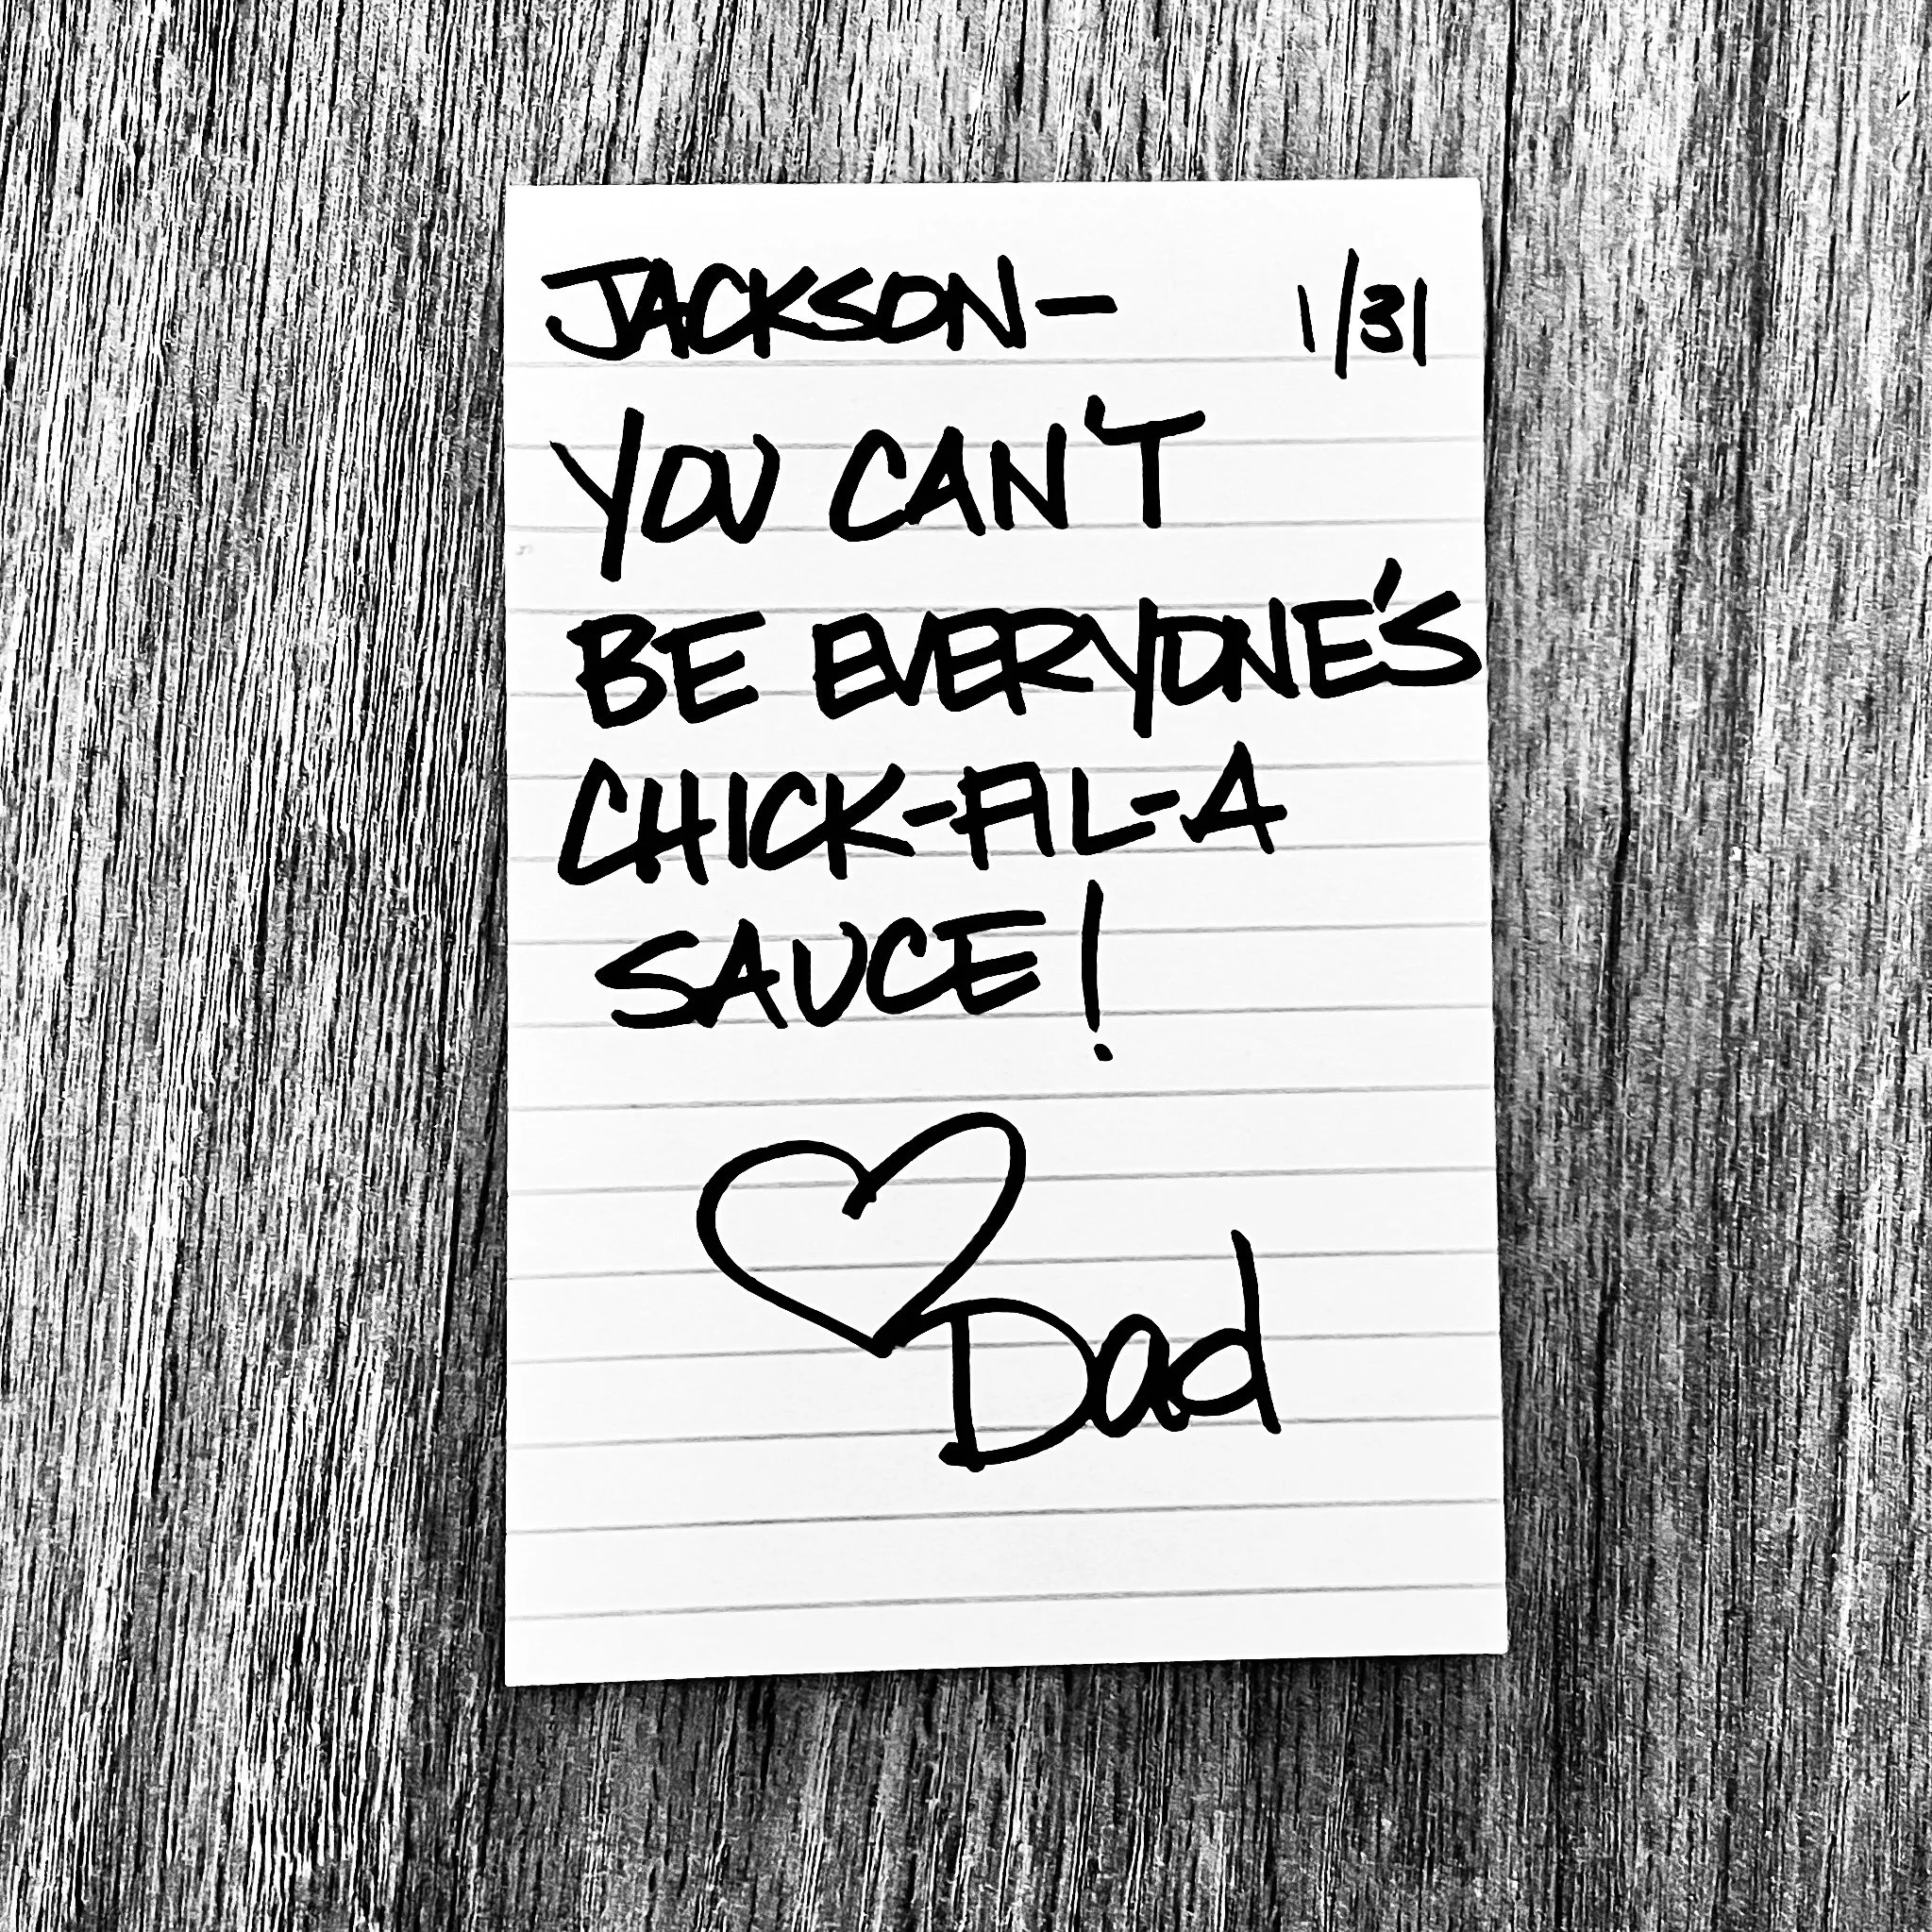 JACKSON- 1/31
YOU CAN'T
BE EVERYONE'S
CHICK-FIL-A
SAUCE!
Dad